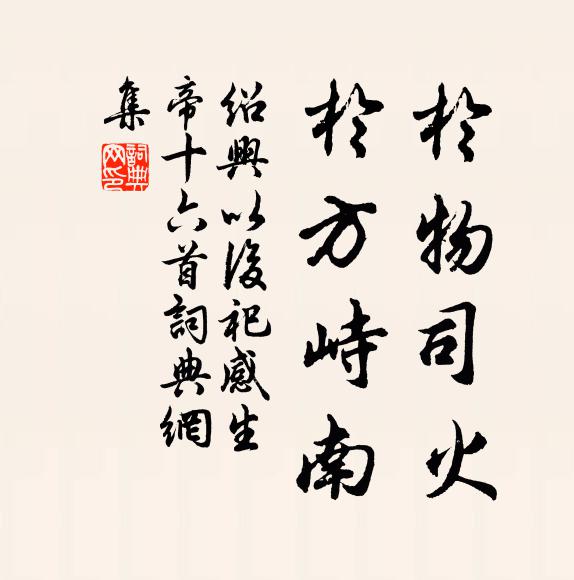 於物司火
於方峙南
紹興以後祀感生
帝十六首詞典網
集
詞典
网印